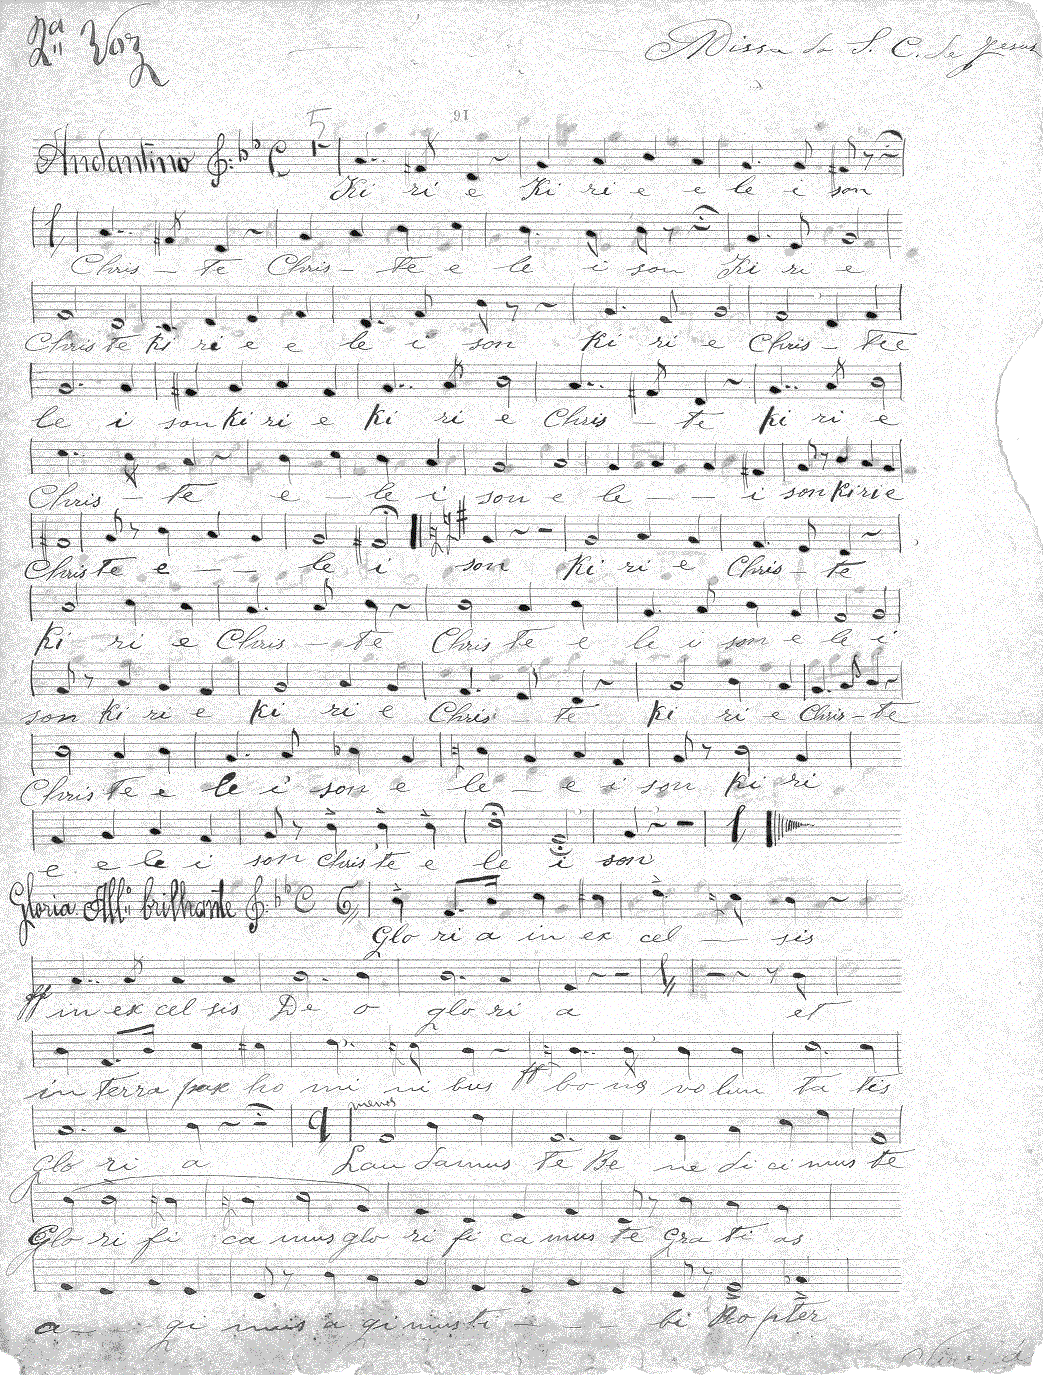 2ª Voz
Missa do S. C. de Jesus
5
91
Andantino
Ki ri e Ki ri e e le i son
Chris - te Chris - te e le i son Ki ri e
Chris te Ki ri e e le i son Ki ri e Chris - te e
le i son Ki ri e Ki ri e Chris - te Ki ri e
Chris - te e - le i son e le - - - i son Ki ri e
Chris te e - - le i son Ki ri e Chris - te
Ki ri e Chris - te Chris te e le i son e le i
son Ki ri e Ki ri e Chris - te Ki ri e Chris - te
Chris te e le i son e le - e i son Ki ri
e e le i son Chris te e le i son
Gloria All.º brilhante
6
Glo ri a in ex cel - - sis
ff in ex cel sis De o glo ri a et
in terra pax ho mi ni bus ff bo na vo lun ta tis
menos
Glo ri a Lau damus te Be ne di ci mus te
Glo ri fi ca mus glo ri fi ca mus te Gra ti as
a - - - gi mus a gi mus ti - - - bi Propter